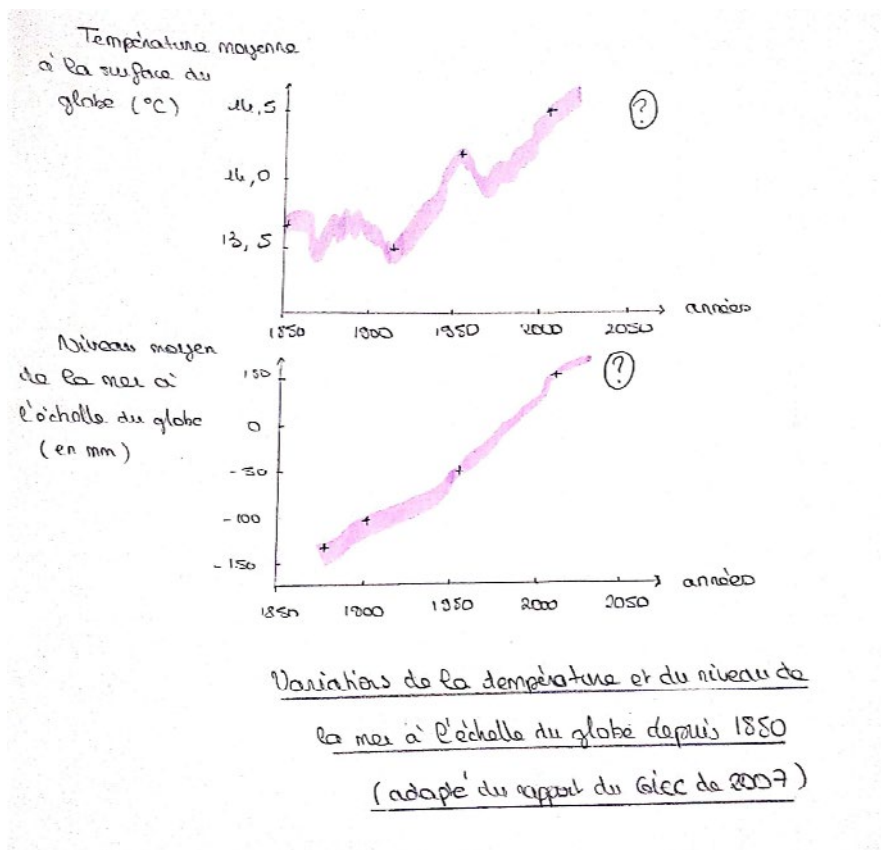 Température moyenne
à la surface du
globe (°C)
14,5
14,0
13,5
?
années
1850 1900 1950 2000 2050
Niveau moyen
de la mer à
l'échelle du globe
(en mm)
150
0
-50
-100
-150
?
années
1850 1900 1950 2000 2050
Variations de la température et du niveau de
la mer à l'échelle du globe depuis 1850
(adapté du rapport du GIEC de 2007)